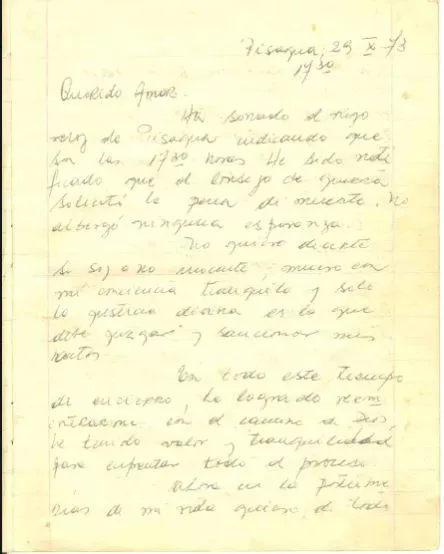 Pisagua, 29 X 73
17³⁰
Querido Amor.
Ha sonado el viejo
reloj de Pisagua indicando que
son las 17³⁰ horas He sido noti
ficado que el Consejo de guerra
solicitó la pena de muerte. No
albergó ninguna esperanza.
No quiero decirte
si soy o no inocente, muero con
mi conciencia tranquila y solo
la justicia divina es la que
debe juzgar y sancionar mis
actos.
En todo este tiempo
de encierro, he logrado
con el camino de Dios,
he tenido valor y tranquilidad
para enfrentar todo el proceso
Ahora en los próximos
días de mi vida quiero de todo